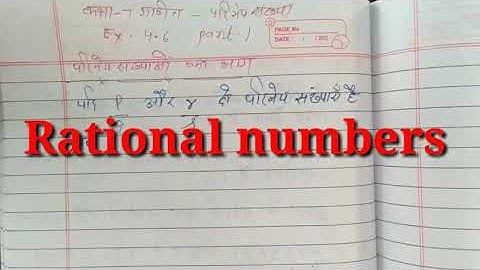 कक्षा-7 गणित - परिमेय संख्या
Ex. 4.6 part 1
PAGE No
DATE
परिमेय संख्याओं का
यदि p और r दो परिमेय संख्याएँ है
Rational numbers